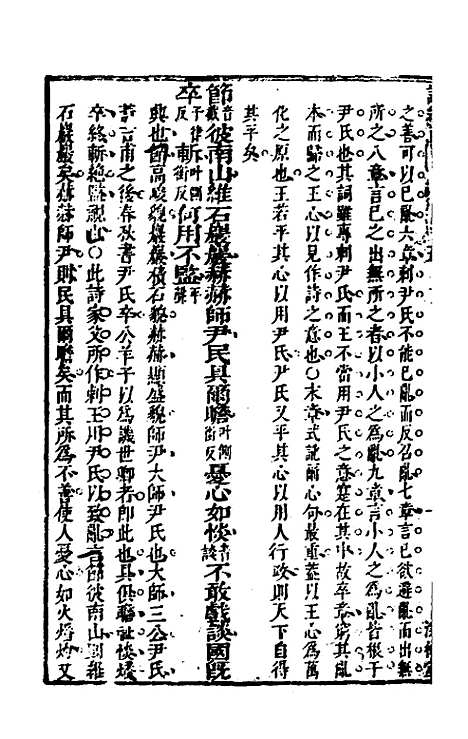 之善可以已亂六章刺尹氏不能已亂而反召亂七章言已欲避亂而出無
所之八章言已之出無所之者以小人之爲亂九章言小人之爲亂皆根于
尹氏也其詞雖專刺尹氏而王不當用尹氏之意寔在其中故卒章窮其亂
本而歸之王心以見作詩之意也○末章式訛爾心句最重蓋以王心爲萬
化之原也王若平其心以用尹氏尹氏又平其心以用人行政則天下自得
其平矣
節音截彼南山維石巖巖赫赫師尹民具爾瞻叶側銜反憂心如惔音談不敢戲談國旣
卒子律反斬叶側銜反何用不監平聲
興也節高峻貌巖巖積石貌赫赫顯盛貌師尹大師尹氏也大師三公尹氏
蓋吉甫之後春秋書尹氏卒公羊子以爲譏世卿者卽此也具俱瞻視惔燔
卒終斬絶監視也○此詩家父所作刺王用尹氏以致亂言節彼南山則維
石巖巖矣赫赫師尹則民具爾瞻矣而其所爲不善使人憂心如火燔灼又